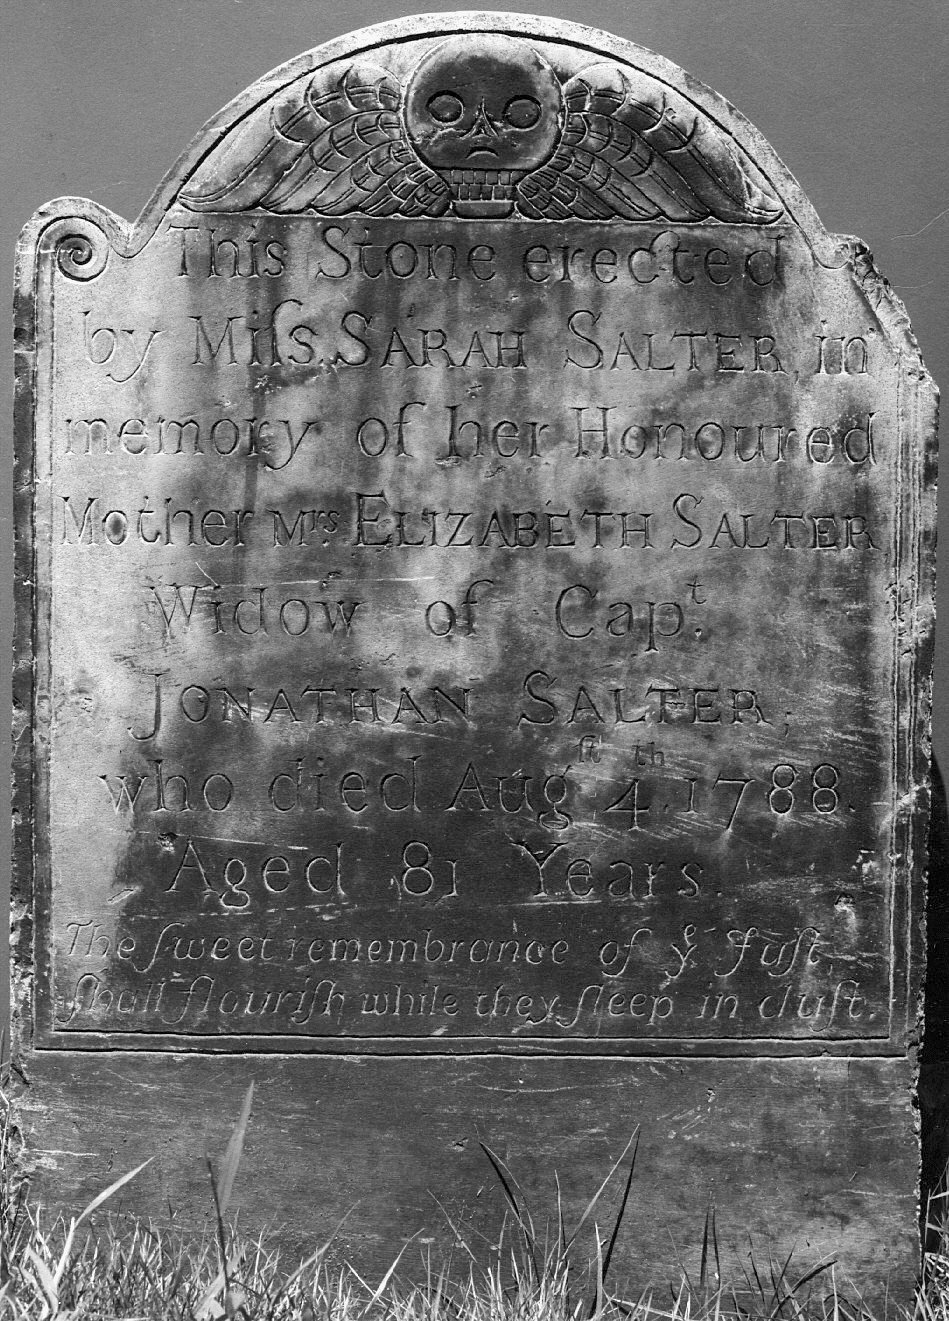 This Stone erected
by Miſs SARAH SALTER in
memory of her Honoured
Mother Mrs. ELIZABETH SALTER
WIDOW OF Capt.
JONATHAN SALTER;
who died Augſt 4th. 1788.
Aged 81 Years.
The ſweet remembrance of yͤ Juſt
Shall flouriſh while they ſleep in duſt.